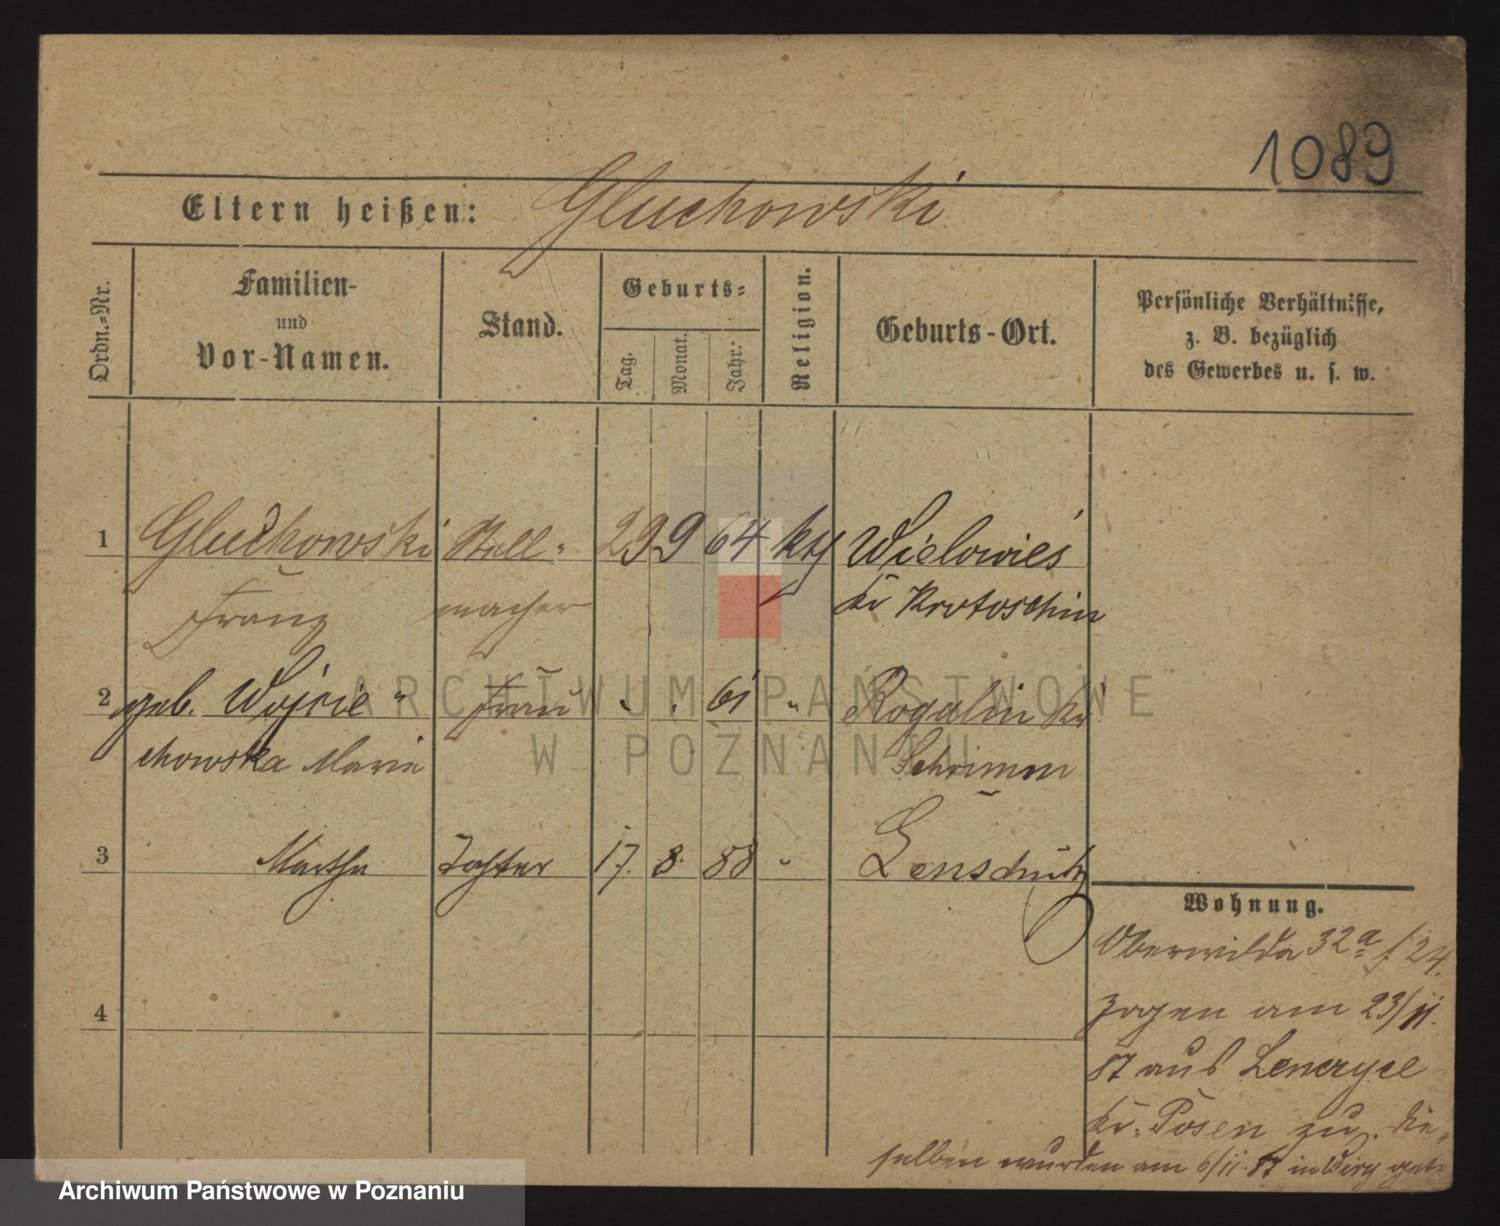 1089
Eltern heißen: Gluchowski
Ordn.-Nr.
Familien-
und
Vor-Namen.
Stand.
Geburts-
Tag.
Monat.
Jahr.
Religion.
Geburts-Ort.
Persönliche Verhältnisse,
z. B. bezüglich
des Gewerbes u. s. w.
1 Gluchowski Stell- 29 9 64 kth Wielowieś
Franz macher Kr Krotoschin
2 geb. Wojcie- Frau 61 " Rogalin Kr
chowska Marie Schrimm
3 Martha Tochter 17. 8. 88 "
4
Wohnung.
Oberwilda 32a /24.
zogen am 23/11.
87 aus
Kr. Posen zu. Die-
selben wurden am 6/11 87 in
ARCHIWUM PAŃSTWOWE
W POZNANIU
Archiwum Państwowe w Poznaniu